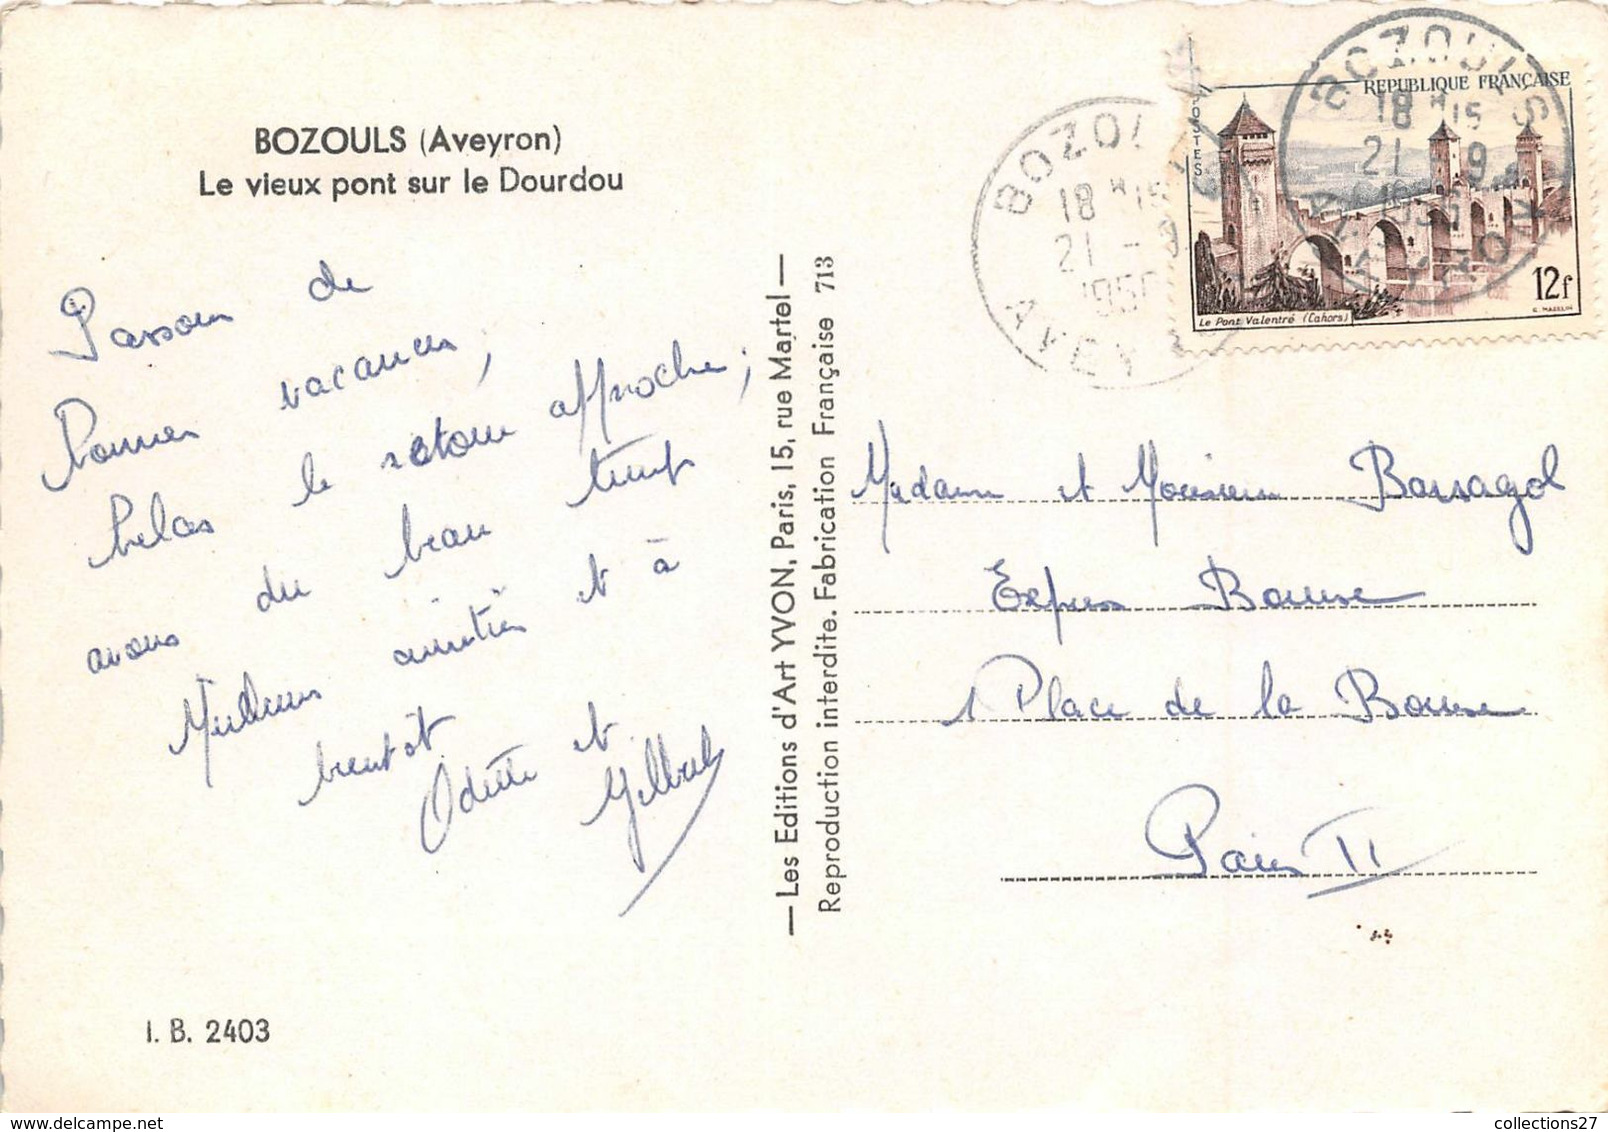 BOZOULS (Aveyron)
Le vieux pont sur le Dourdou
Passons de
bonnes vacances,
hélas le retour approche;
avons du beau temps
Meilleures amitiés et à
bientôt
Odette et
Gilbert
I. B. 2403
— Les Editions d'Art YVON, Paris, 15, rue Martel —
Reproduction interdite. Fabrication Française 713
BOZOULS
18 H 15
21 - 9
AVEYRON
REPUBLIQUE FRANÇAISE
POSTES
12f
Le Pont Valentré (Cahors)
BOZOULS
18 H 15
21 - 9
AVEYRON
Madame et Monsieur Barsagol
Express Bourse
1 Place de la Bourse
Paris II
collections27
www.delcampe.net